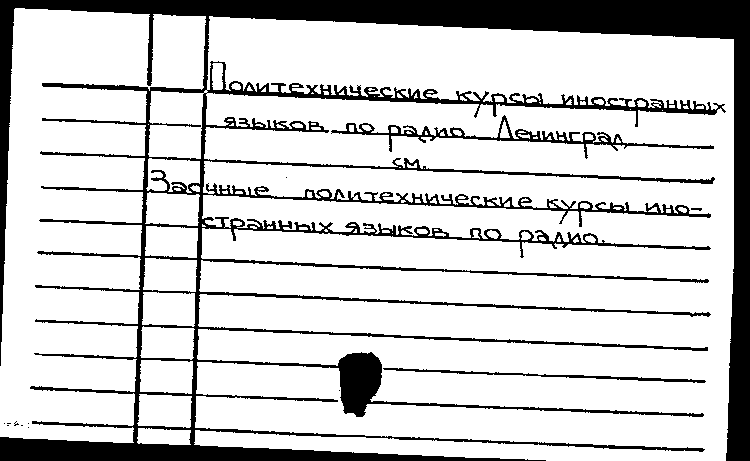 Политехнические курсы иностранных
языков по радио. Ленинград
см.
Заочные политехнические курсы ино-
странных языков по радио.